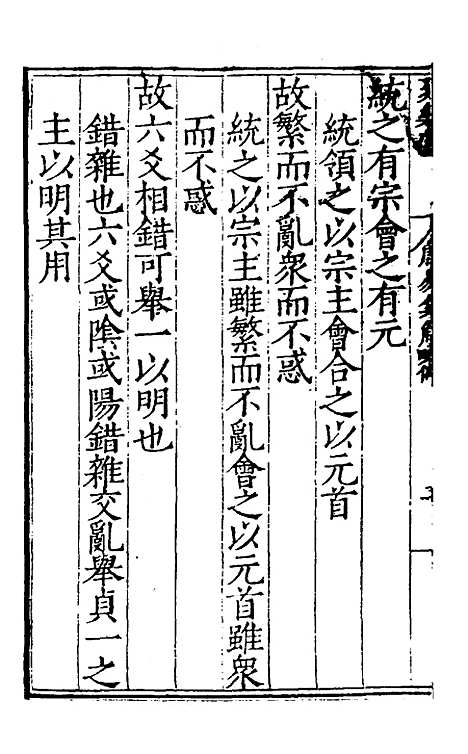 統之有宗會之有元
統領之以宗主會合之以元首
故繁而不亂衆而不惑
統之以宗主雖繁而不亂會之以元首雖衆
而不惑
故六爻相錯可舉一以明也
錯雜也六爻或陰或陽錯雜交亂舉貞一之
主以明其用